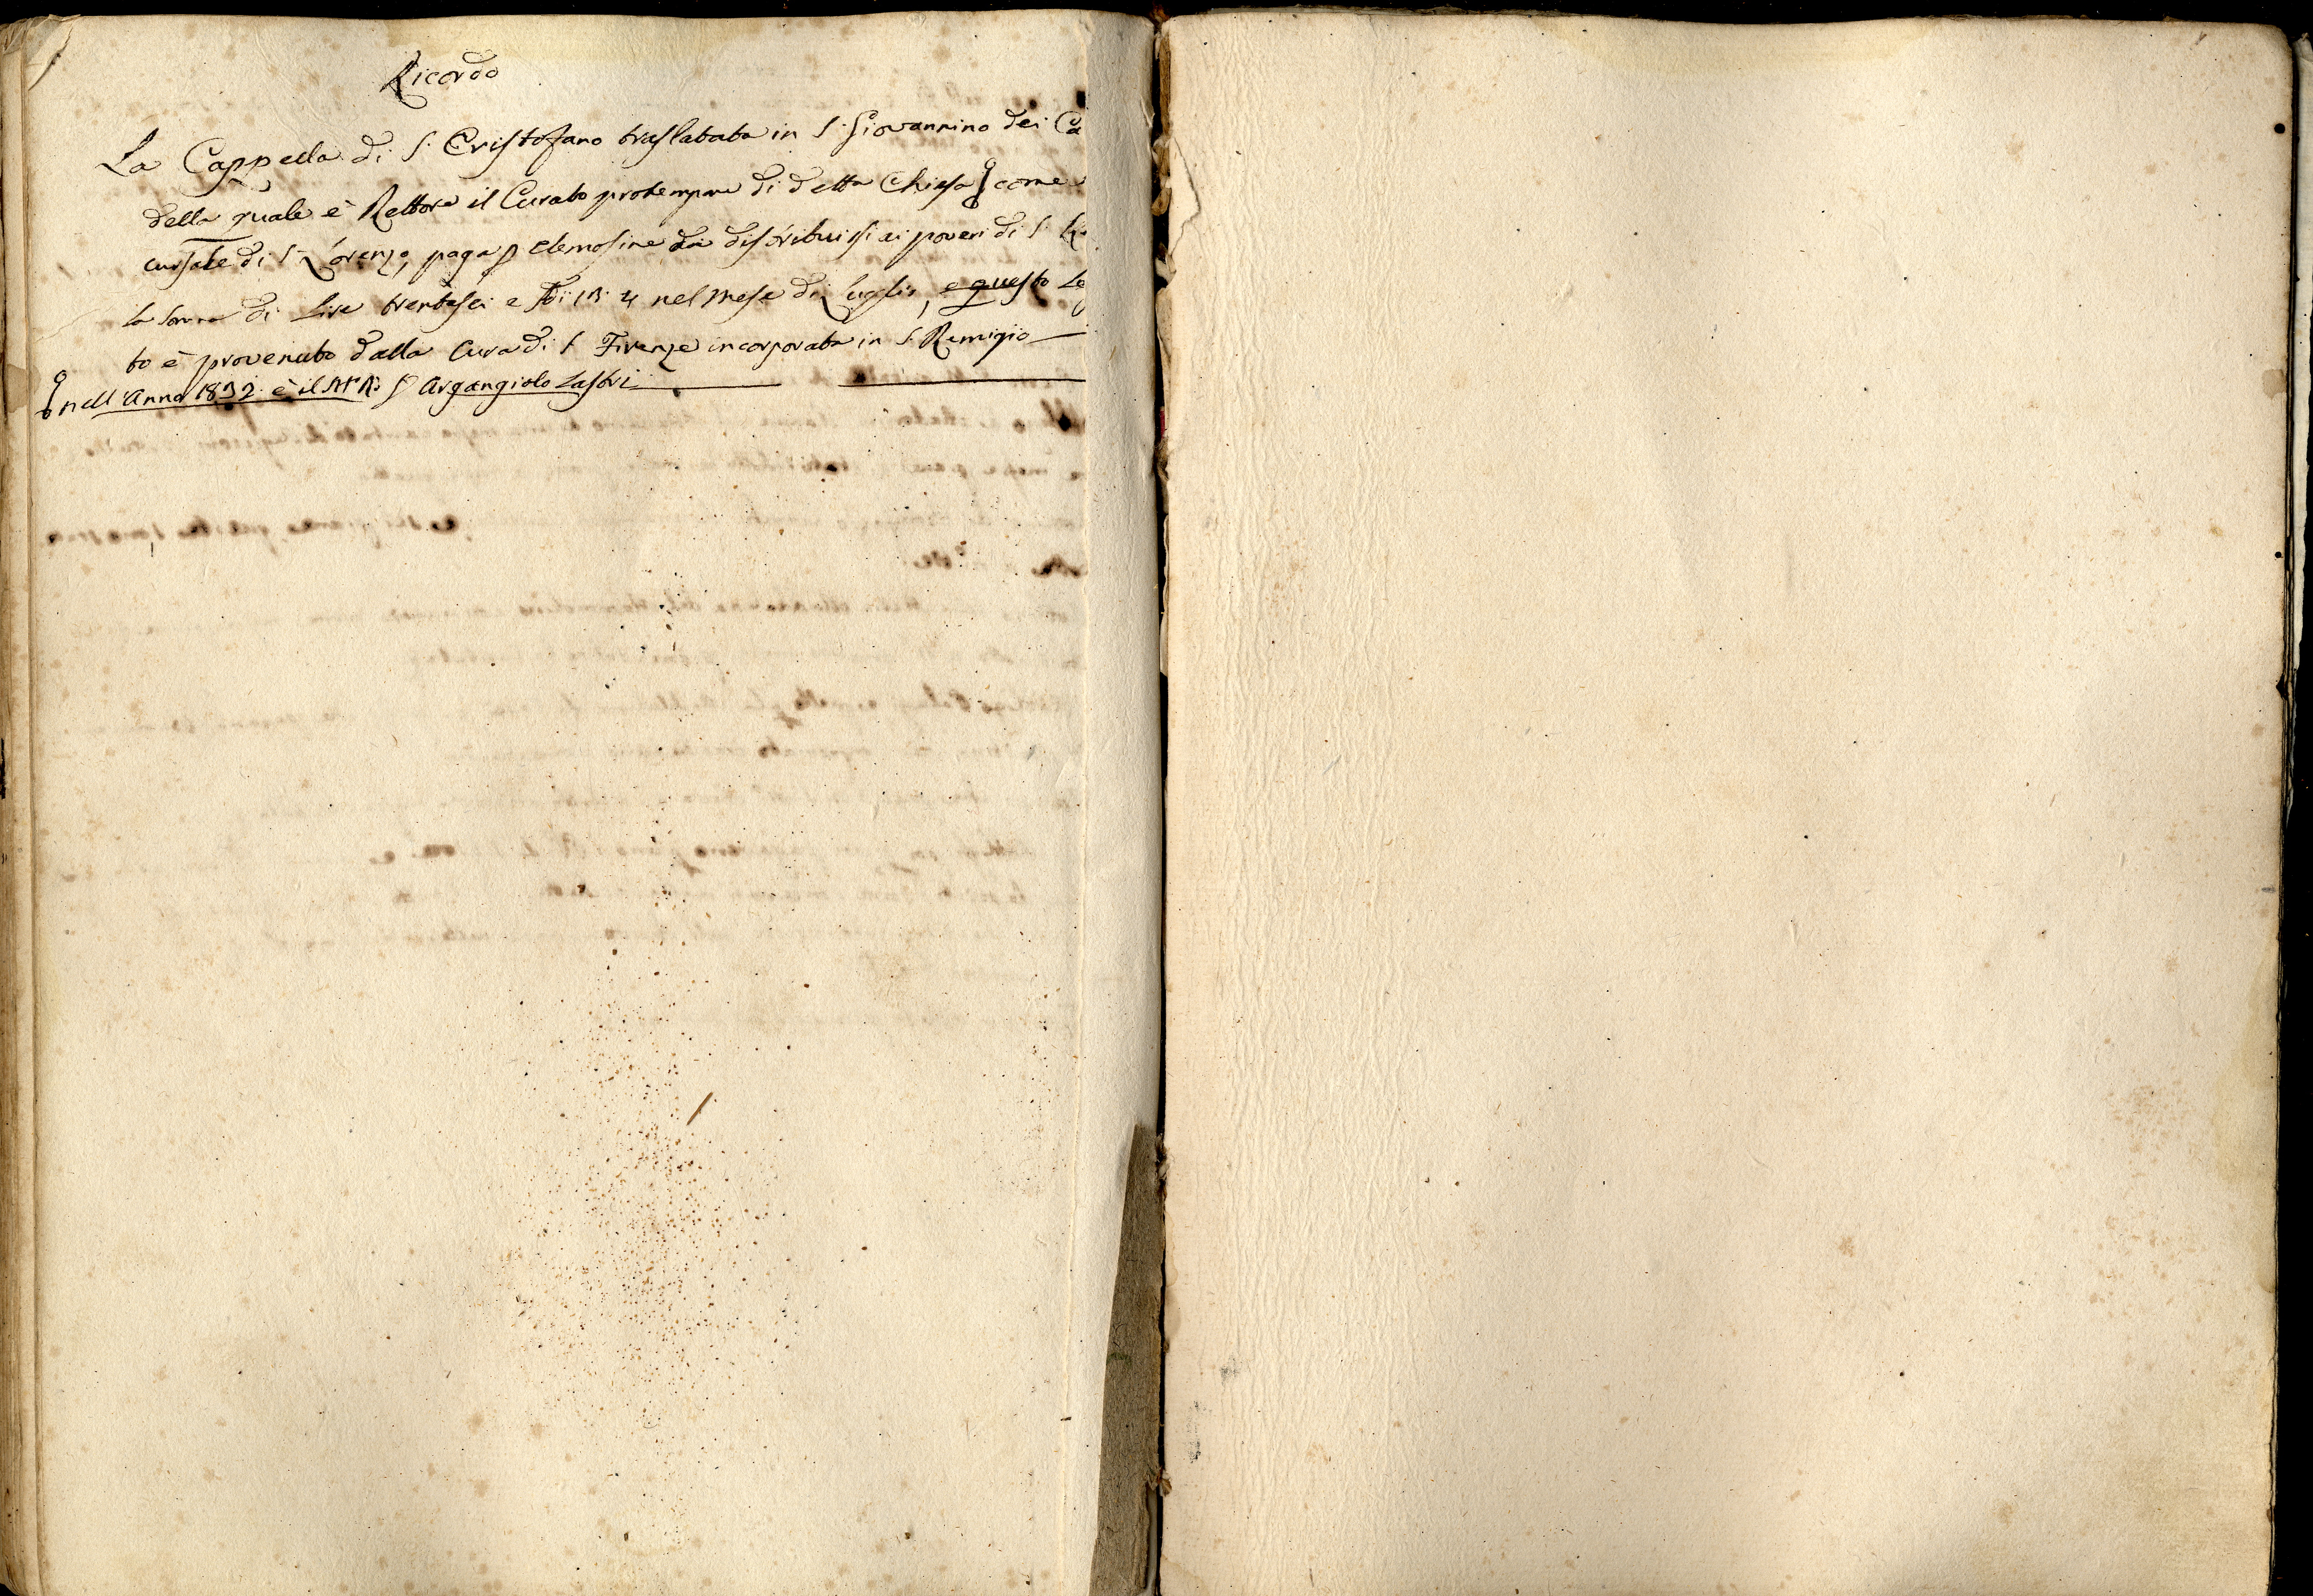 Ricordo
La Cappella di S. Cristofano traslatata in S. Giovannino dei Ca
della quale è Rettore il Curato protempore di detta Chiesa come
cursale di S. Lorenzo, paga p elemosine da distribuirsi ai poveri di S.
la somma di Lire trentasei e nel Mese di Luglio, e questo Le
to è provenuto dalla Cura di S. Firenze incorporata in S. Remigio
nell'Anno 1832. è il Argangiolo Lastri